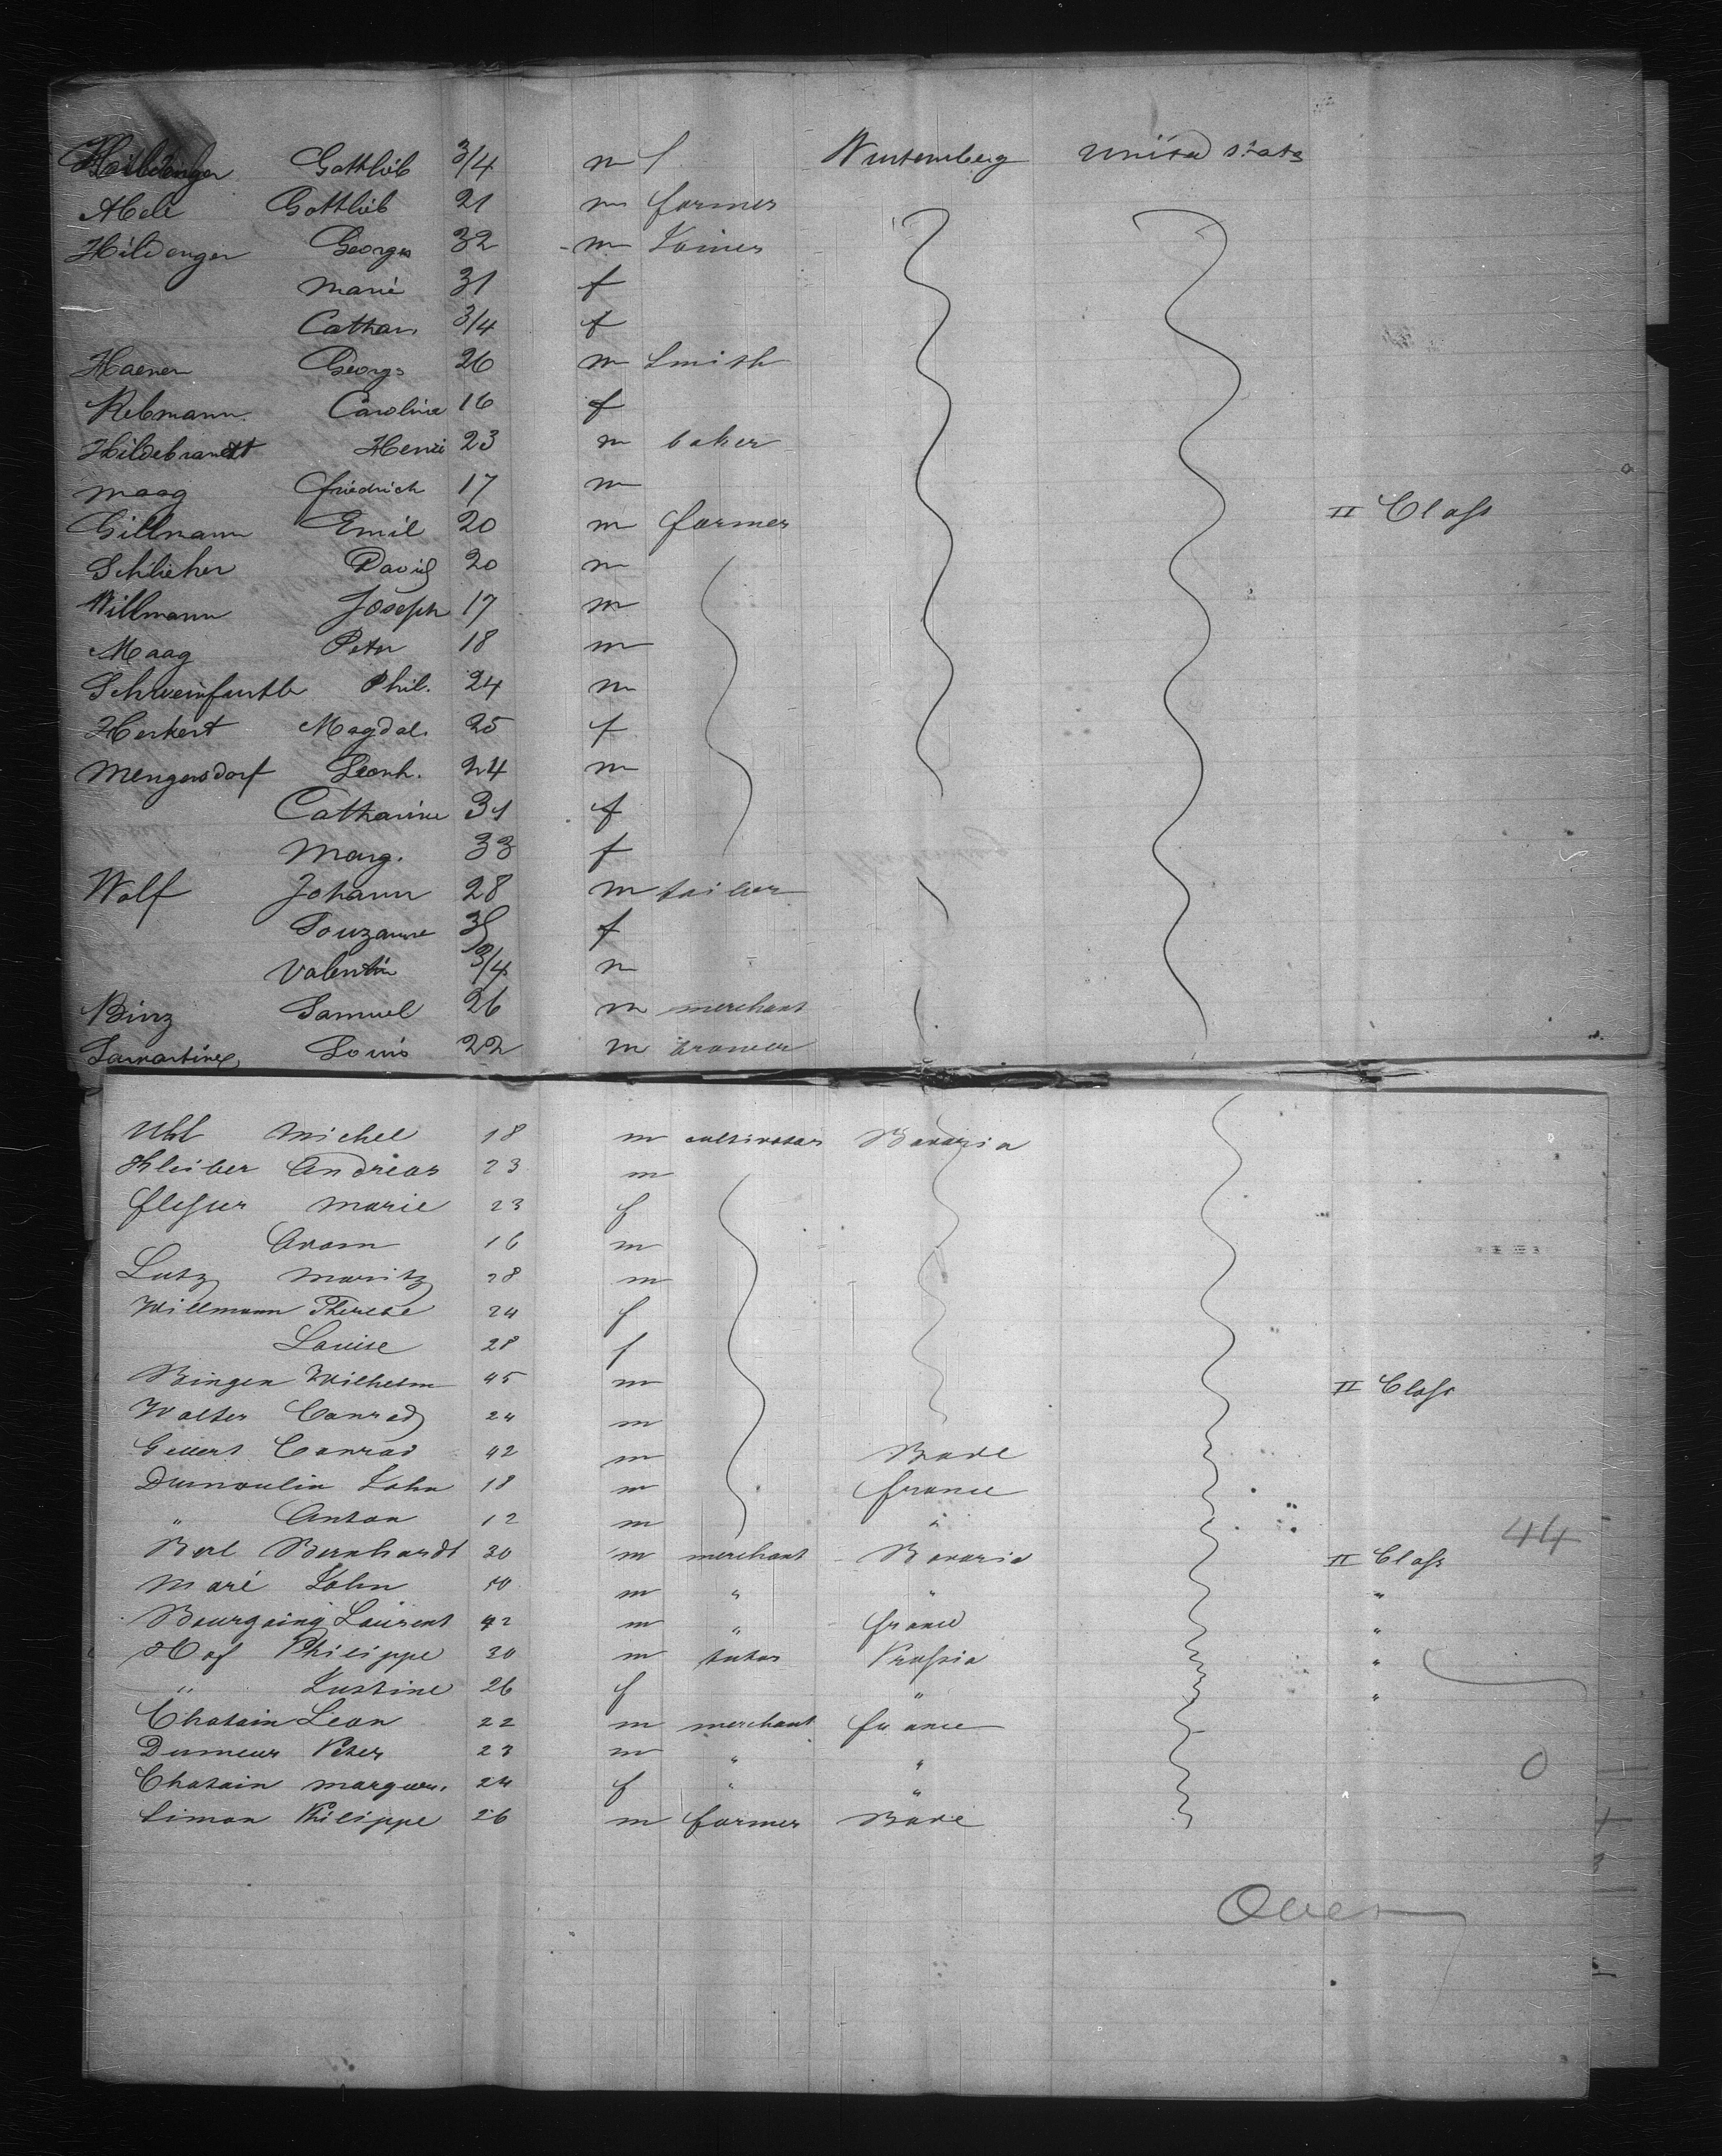 Hildenger Gottlieb 3/4 m f Wurtemberg united states
Abele Gottlieb 21 m farmer
Hildenger Georges 32 m Joiner
Marie 31 f
Cathar. 3/4 f
Haener Georgs 26 m Smith
Rebmann Caroline 16 f
Hildebrandt Henri 23 m baker
Maag friedrich 17 m
Gillmann Emil 20 m farmer II Class
Schlieher David 20 m
Willmann Joseph 17 m
Maag Peter 18 m
Schweinfurth Phil. 24 m
Herkert Magdal. 25 f
Mengersdorf Leonh. 24 m
Catharine 31 f
Marg. 33 f
Wolf Johann 28 m tailor
Souzanne 35 f
Valentin 3/4 m
Binz Samuel 26 m merchant
Lamartine Louis 22 m brower
Uhl Michel 18 m cultivator Bavaria
Kleiber Andreas 23 m
flesser Marie 23 f
Adam 16 m
Lutz Moritz 28 m
Willmann Therese 24 f
Louise 28 f
Bingen Wilhelm 45 m II Class
Walter Conrad 24 m
Gellert Conrad 42 m Bade
Dumoulin John 18 m france
" Anton 12 m "
44
Berl Bernhardt 30 m merchant Bavaria II Class
Maré John 40 m " " "
Bourgoing Laurent 42 m " france "
Hof Philippe 30 m tutor Prussia "
" Justine 26 f " "
Chatain Leon 22 m merchant france
Dumeur Peter 23 m " "
0
Chatain marguer. 24 f " "
Simon Philippe 26 m farmer Bade
Over